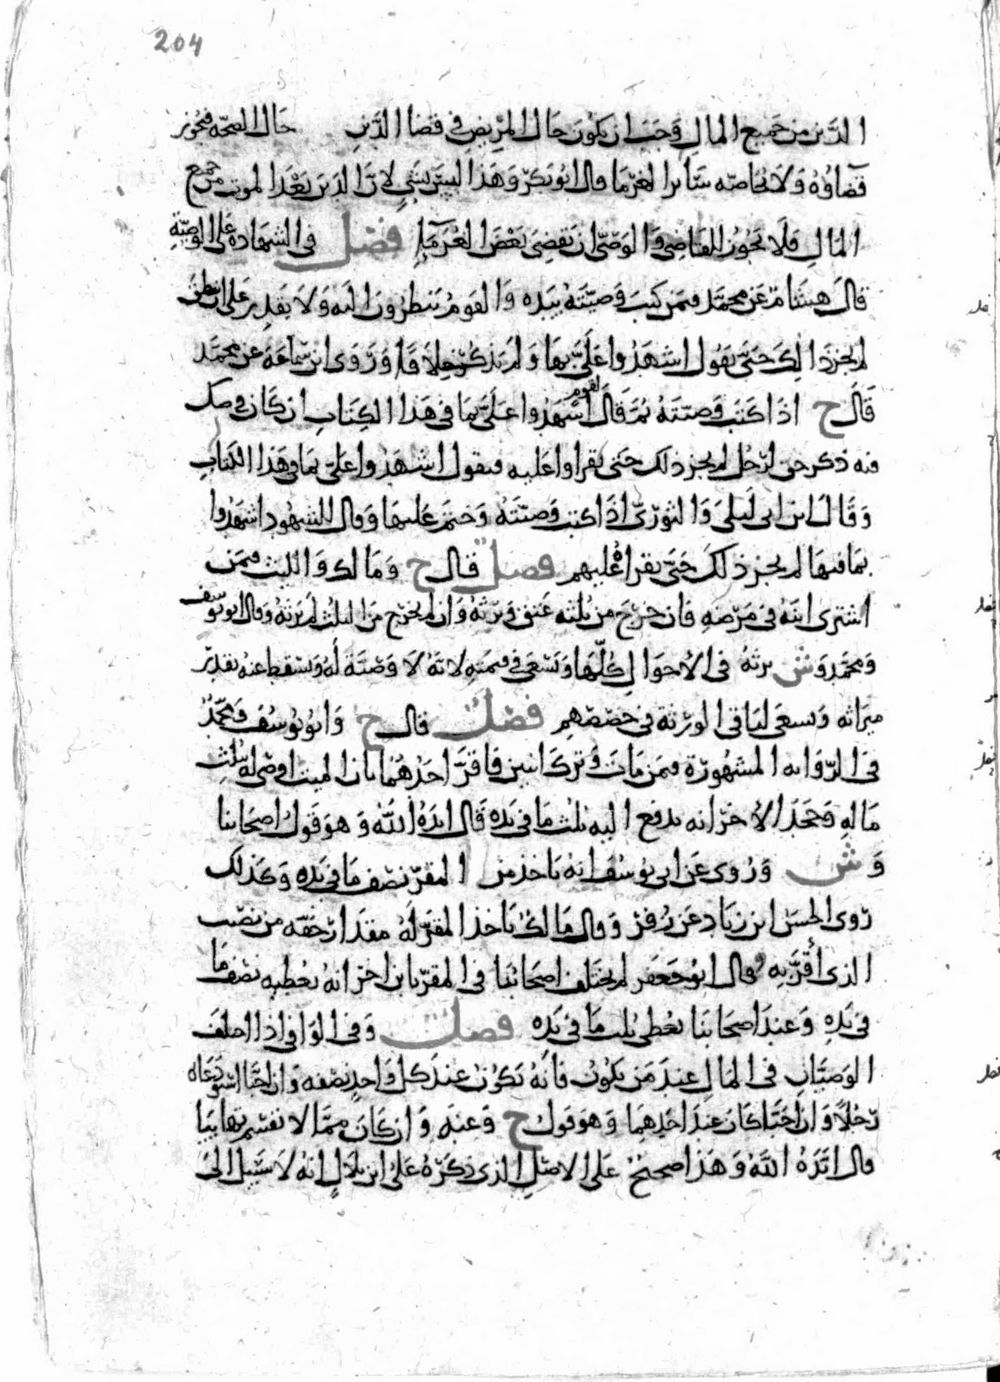 204
الدين من جميع المال وجب ان يكون حال المريض في قضا الدين حال الصحه فيجوز
قضاؤه ولا يحاصه سائر الغرما قال ابو بكر وهذا ليس بشي لان الدين بعد الموت من جميع
المال فلا يجوز للقاضي والوصي ان يقضي بعض الغرماء فصل في الشهاده على الوصية
قال هشام عن محمد فيمن كتب وصيته بيده والقوم ينظرون اليه ولا يقدر على ان ينطق
لم يجز ذالك حتى يقول اشهدوا علي بها ولم يذكر خلافا وروى ابن سماعة عن محمد
قال ح اذا كتب وصيته ثم قال لقوم اشهدوا علي بما في هذا الكتاب ان كان في صك
فيه ذكر حق لرجل لم يجز ذلك حتى يقراوا عليه فيقول اشهدوا علي بما في هذا الكتاب
وقال ابن ابي ليلى والثوري اذا كتب وصيته وختم عليها وقال للشهود اشهدوا
بما فيها لم يجز ذلك حتى يقرا عليهم فصل قال ح ومالك والليث فيمن
اشترى ابنه في مرضه فان خرج من ثلثه عتق وورثه وان لم يخرج من الثلث لم يرثه وقال ابو يوسف
ومحمد وش يرثه في الاحوال كلها ويسعى في قيمته لانه لا وصية له ويسقط عنه بقدر
ميراثه ويسعى لباقي الورثة في حصصهم فصل قال ح وابو يوسف ومحمد
في الروايه المشهورة فيمن مات وترك ابنين فاقر احدهما بان الميت اوصى له بثلث
ماله وجحد الاخر انه يدفع اليه ثلث ما في يده قال ايده الله وهو قول اصحابنا
وش وروى عن ابي يوسف انه ياخذ من المقر نصف ما في يده وكذلك
روى الحسن ابن زياد عن زفر وقال مالك ياخذ المقر له مقدار حقه من نصيب
الذي أقر به وقال ابو جعفر لم يختلف اصحابنا في المقر بابن اخر انه يعطيه نصف ما
في يده وعند اصحابنا يعطي ثلث ما في يده فصل وفي الوافي واذا اختلف
الوصيان في المال عند من يكون فانه يكون عند كل واحد نصفه وان احبا استودعاه
رجلا وان احبا كان عند احدهما وهو قول ح وعنه وان كان مما لا يقسم
قال ايده الله وهذا صحيح على الاصل الذي ذكره علي ابن بلال انه لا سبيل الى